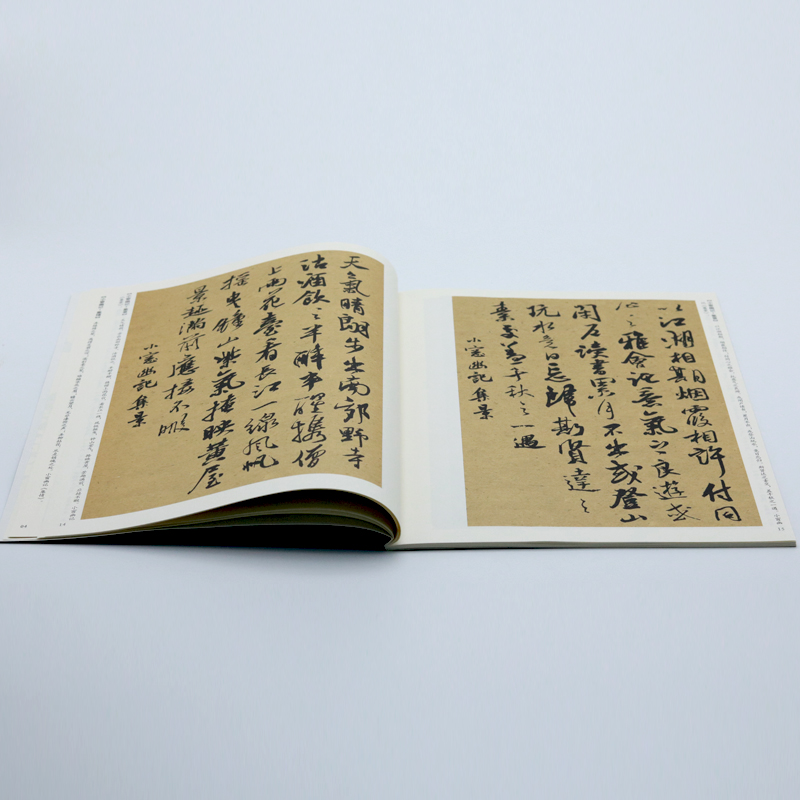 以江湖相期烟霞相許付同
心之雅會託意氣之良遊或
閉户读書累月不出或登山
玩水竟日忘歸斯賢達之
素交蓋千秋之一遇
小窗幽記集景
13
天氣晴朗步出南郊野寺
沽酒飲之半醉半醒攜僧
上雨花臺看長江一線風帆
摇曳鍾山紫氣掩映黄屋
景趣滿前應接不暇
小窗幽記集景
14